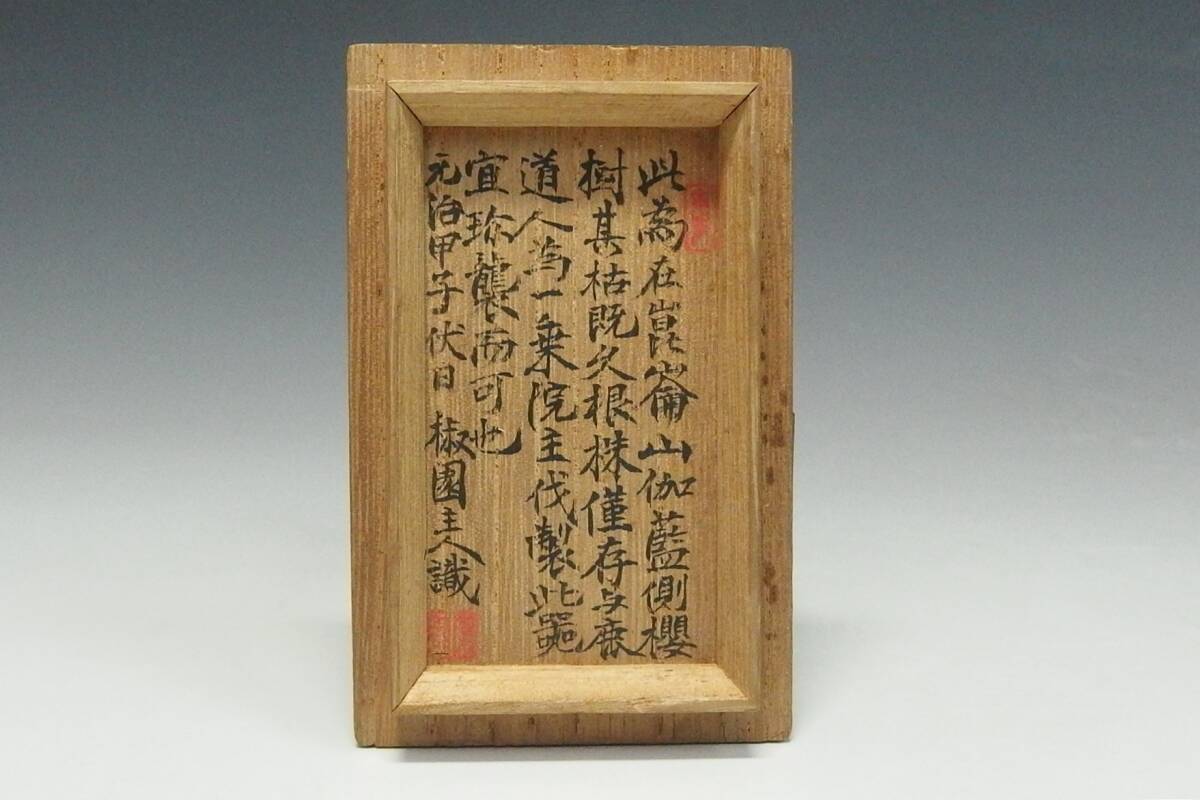 此為在崑崙山伽藍側櫻
樹其枯既久根株僅存与鹿
道人為一乗院主伐製此器
宜珎襲而可也
元治甲子伏日 椒園主人識